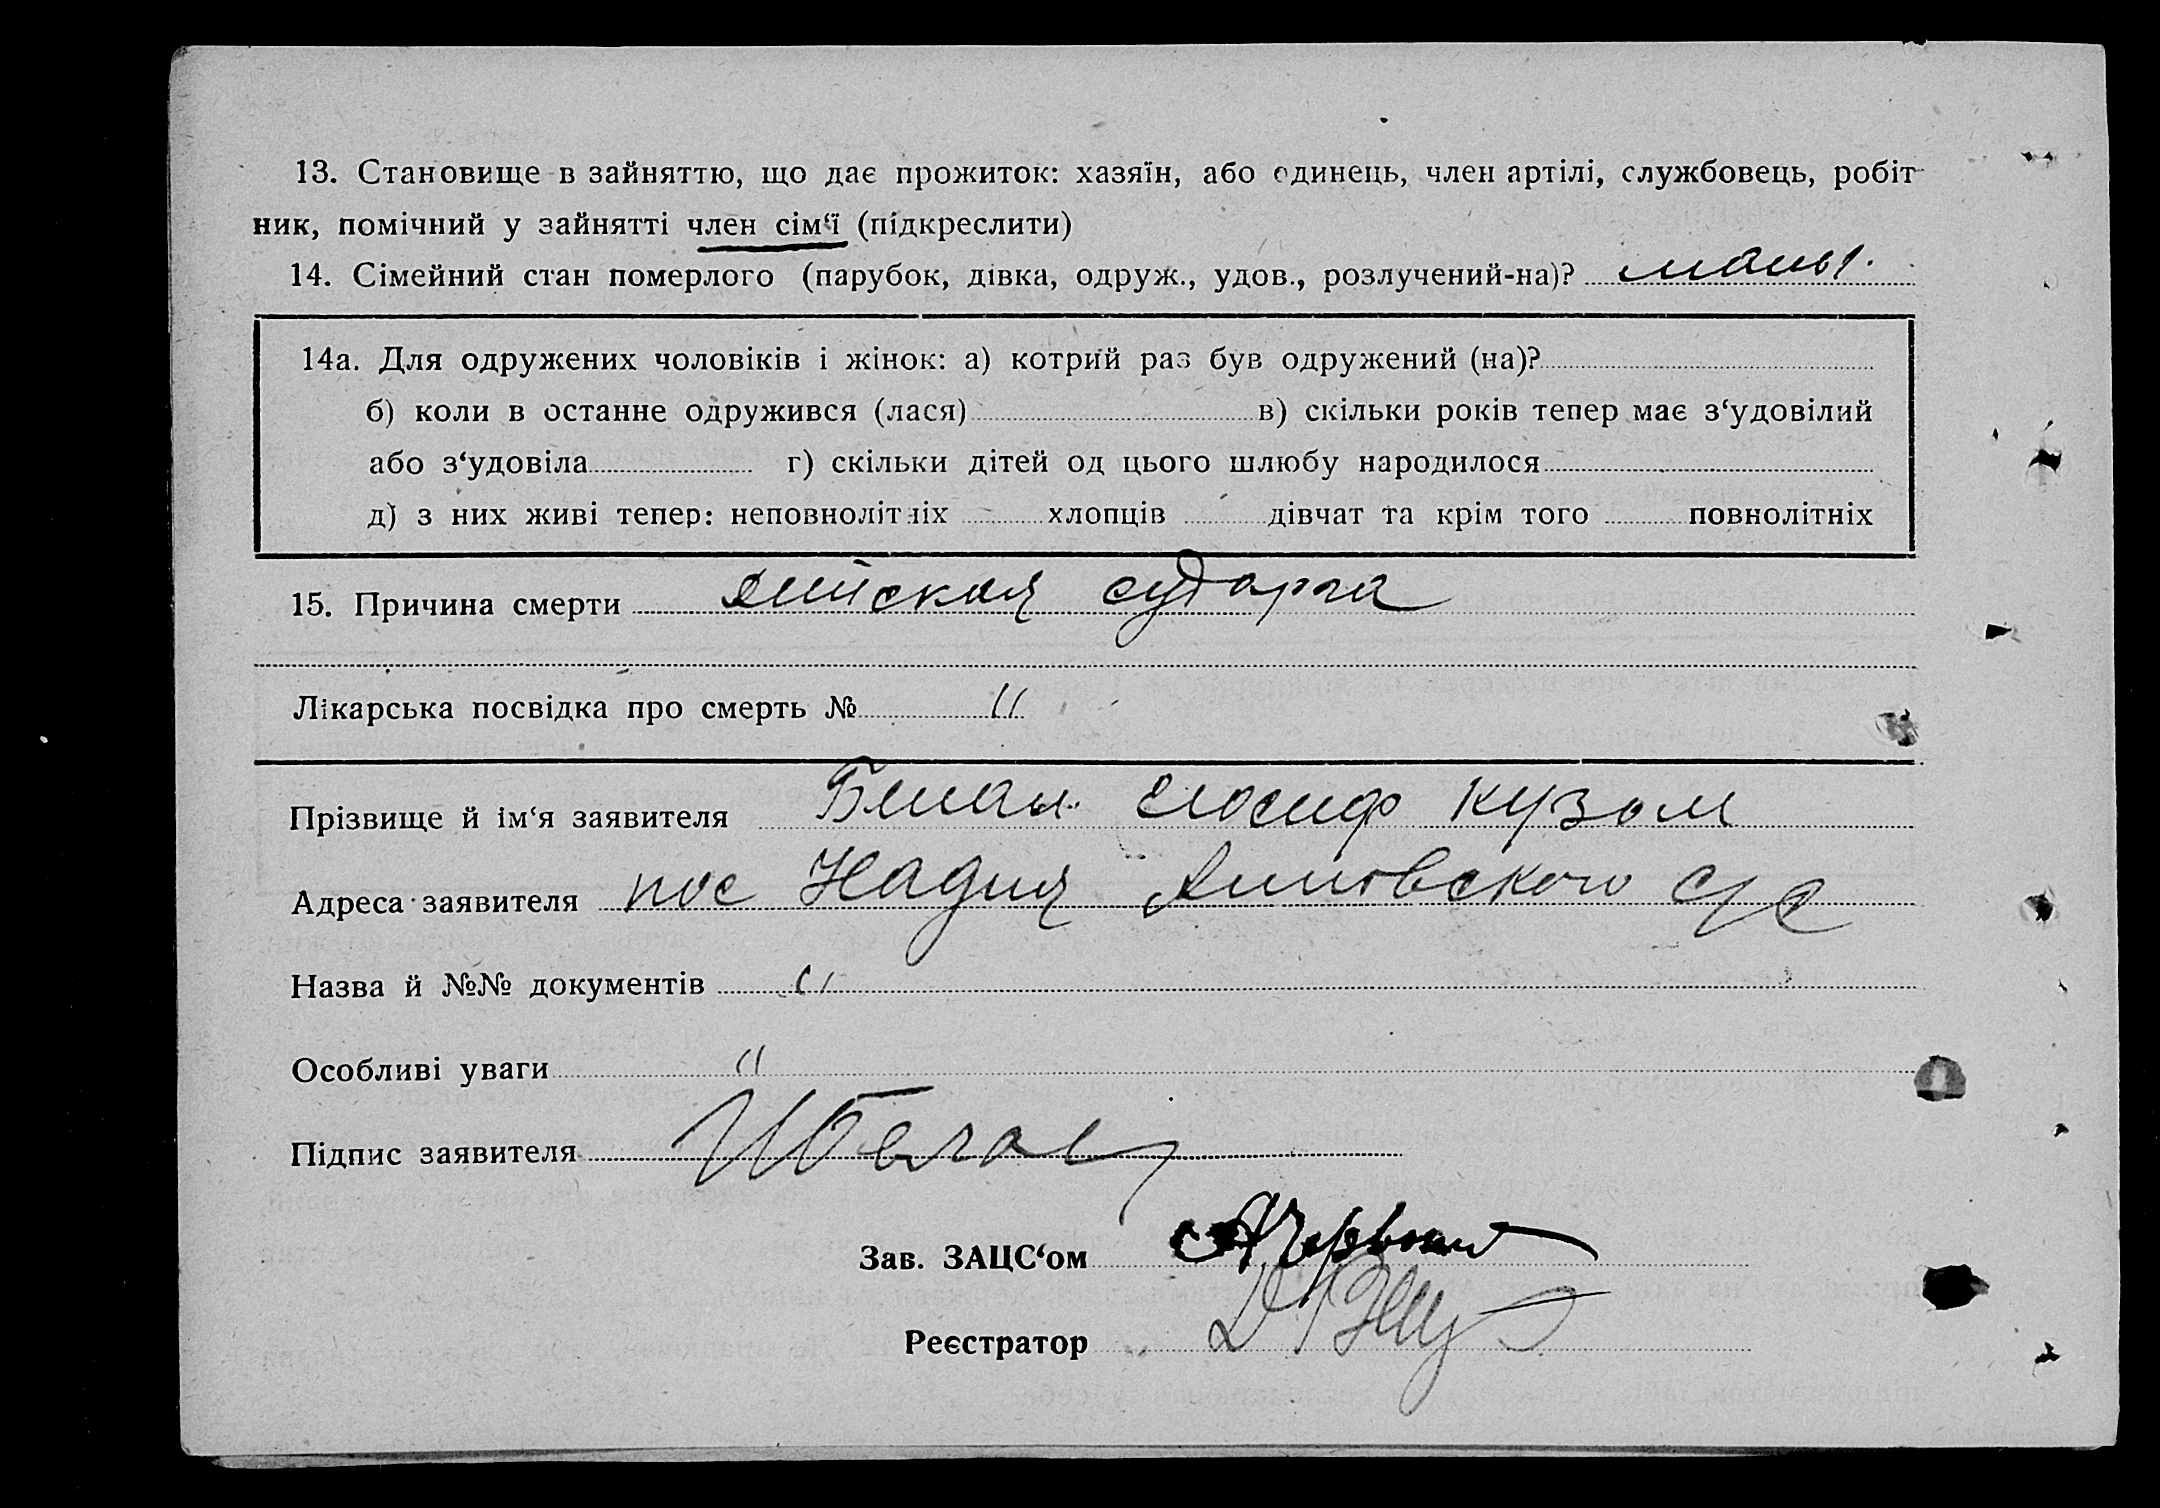 13. Становище в зайняттю, що дає прожиток: хазяїн, або одинець, член артілі, службовець, робіт
ник, помічний у зайнятті член сім‘ї (підкреслити)
14. Сімейний стан померлого (парубок, дівка, одруж., удов., розлучений-на)?
14а. Для одружених чоловіків і жінок: а) котрий раз був одружений (на)?
б) коли в останне одружився (лася) в) скільки років тепер має з‘удовілий
або з‘удовіла г) скільки дітей од цього шлюбу народилося
д) з них живі тепер: неповнолітніх хлопців дівчат та крім того повнолітніх
15. Причина смерти детская судорга
Лікарська посвідка про смерть № "
Прізвище й ім‘я заявителя Иосиф Кузьм
Адреса заявителя пос Надия с/с
Назва й №№ документів "
Особливі уваги "
Підпис заявителя
Зав. ЗАЦС‘ом
Реєстратор